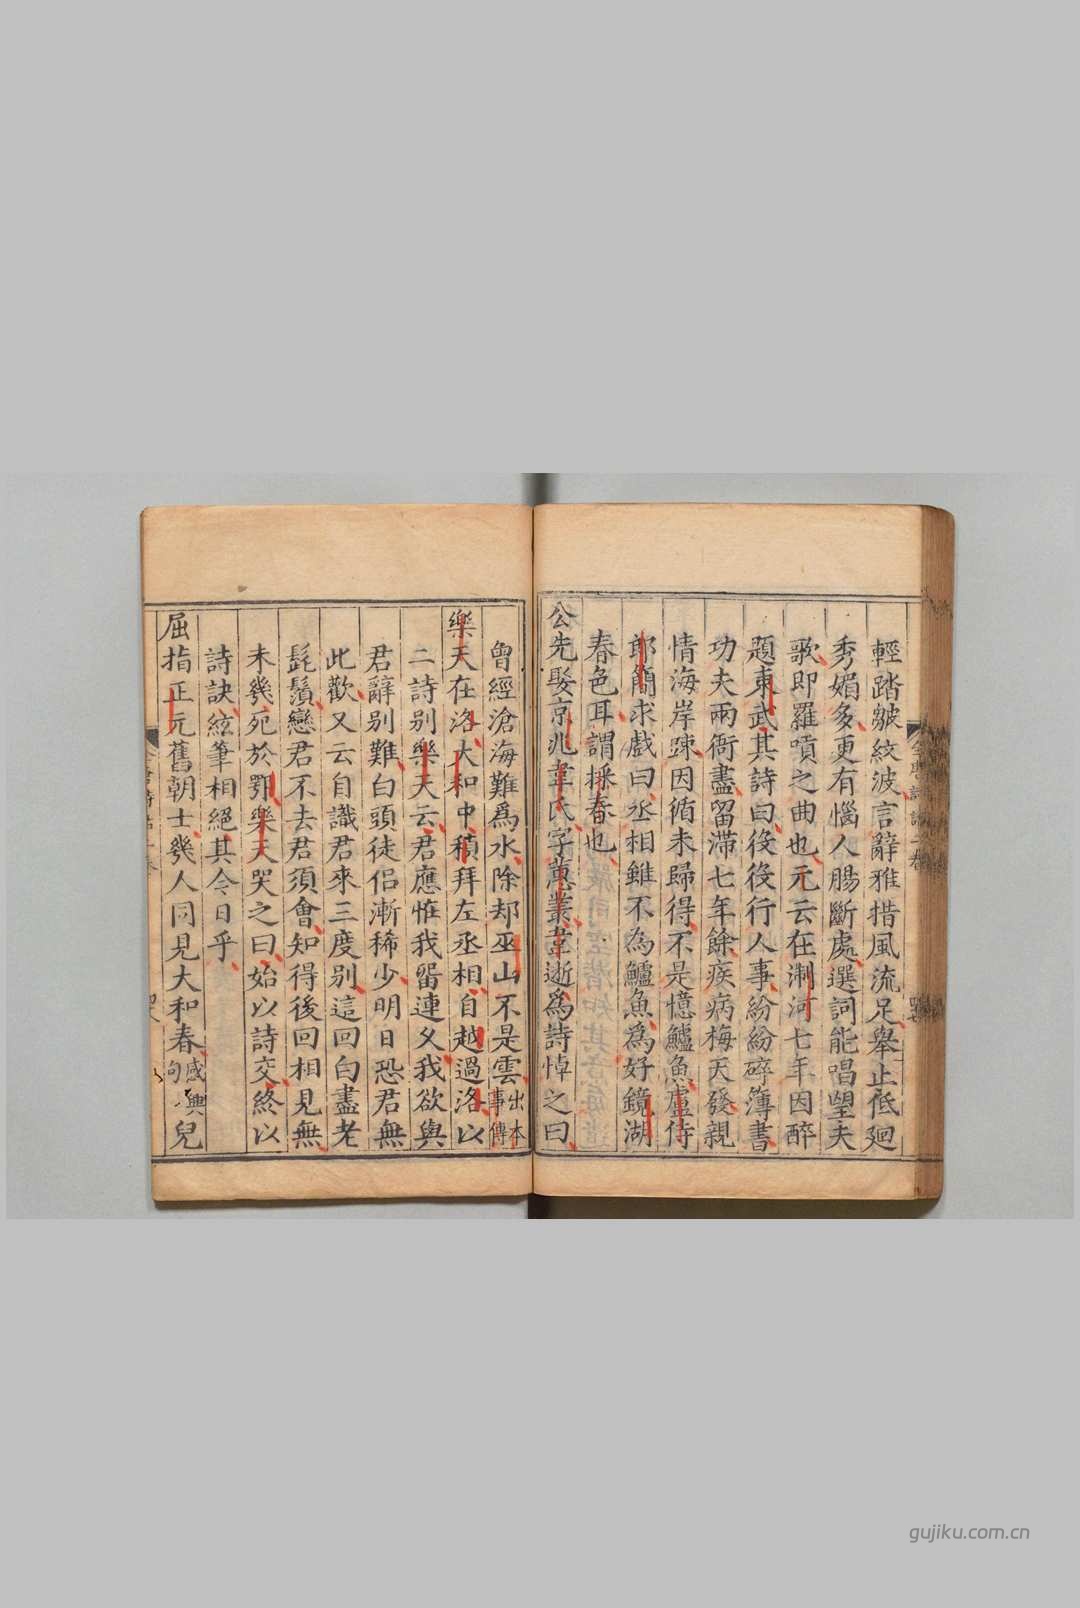 輕踏皺紋波言辭雅措風流足舉止低廻
秀媚多更有惱人腸斷處選詞能唱望夫
歌即羅嗊之曲也元云在淛河七年因醉
題東武其詩曰役役行人事紛紛碎簿書
功夫兩衙盡留滯七年餘疾病梅天發親
情海岸踈因循未歸得不是憶鱸魚盧侍
郎簡求戲曰丞相雖不為鱸魚為好鏡湖
春色耳謂採春也
公先娶京兆韋氏字蕙叢韋逝爲詩悼之曰
曾經滄海難爲水除却巫山不是雲出本事傳
樂天在洛大和中稹拜左丞相自越過洛以
二詩別樂天云君應惟我留連久我欲與
君辭別難白頭徒侶漸稀少明日恐君無
此歡又云自識君來三度別這回白盡老
髭鬚戀君不去君須會知得後回相見無
未幾死於鄂樂天哭之曰始以詩交終以
詩訣絃筆相絕其今日乎
屈指正元舊朝士幾人同見大和春感興句兒
gujiku.com.cn